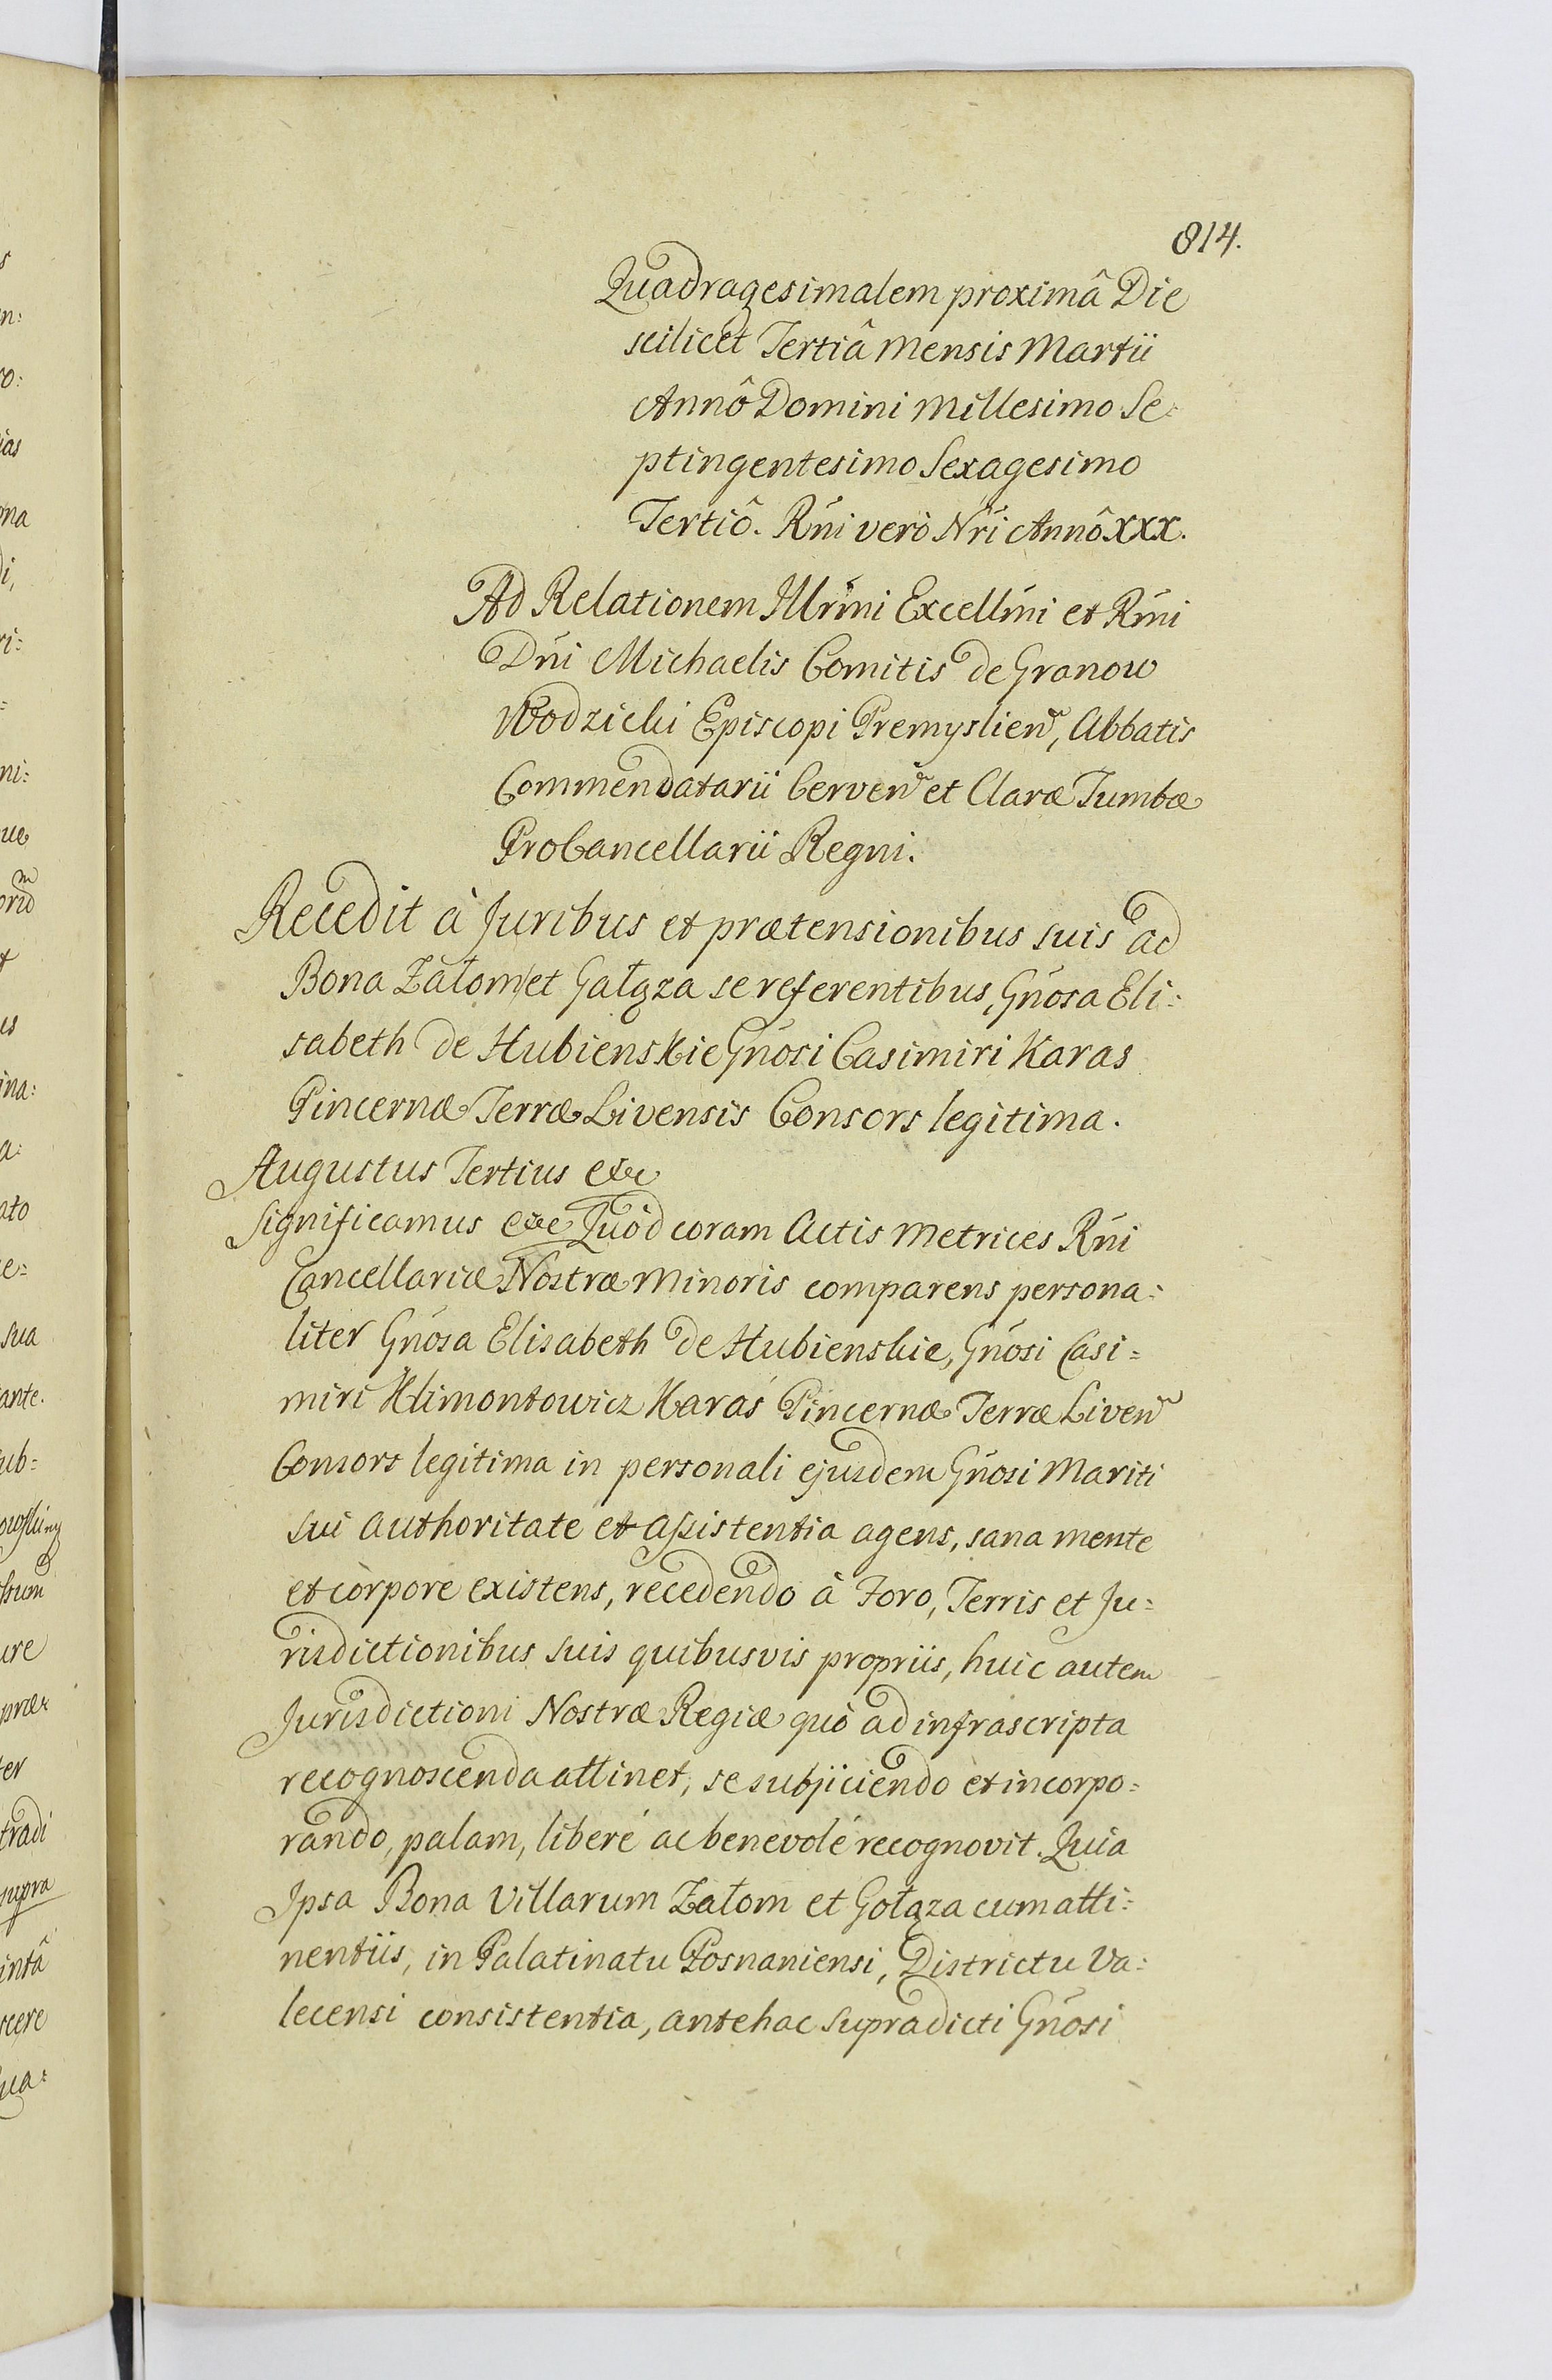 814.
Quadragesimalem proximâ Die
scilicet Tertiâ mensis Martii
Annô Domini Millesimo Se=
ptingentesimo Sexagesimo
Tertiô. Rńi verò Nŕi Annô XXX.
Ad Relationem Illrḿi Excellḿi et Rḿi
Dńi Michaelis Comitis de Granow
Wodzicki Episcopi Premyslien̄, Abbatis
Commendatarii Cerven̄ et Claræ Tumbæ
ProCancellarii Regni.
Recedit à Juribus et prætensionibus suis ad
Bona Załom et Gałąza se referentibus, Gńosa Eli:
sabeth de Hubienskie Gńosi Casimiri Karas
Pincernæ Terræ Livensis Consors legitima.
Augustus Tertius etc
Significamus etc Quòd coram Actis Metrices Rńi
Cancellariæ Nostræ Minoris comparens persona:
liter Gńosa Elisabeth de Hubienskie, Gńosi Casi=
miri Klimontowicz Karaś Pincernæ Terræ Liven̄
Consors legitima in personali ejusdem Gńosi Mariti
sui authoritate et assistentia agens, sana mente
et corpore existens, recedendo à Foro, Terris et Ju:
risdictionibus suis quibusvis propriis, huic autem
Jurisdictioni Nostræ Regiæ quò ad infrascripta
recognoscenda attinet, se subjiciendo et incorpo=
rando, palam, liberé ac benevolé recognovit. Quia
Ipsa Bona Villarum Załom et Gołąza cum atti:
nentiis, in Palatinatu Posnaniensi, Districtu Va:
lecensi consistentia, antehac supradicti Gńosi